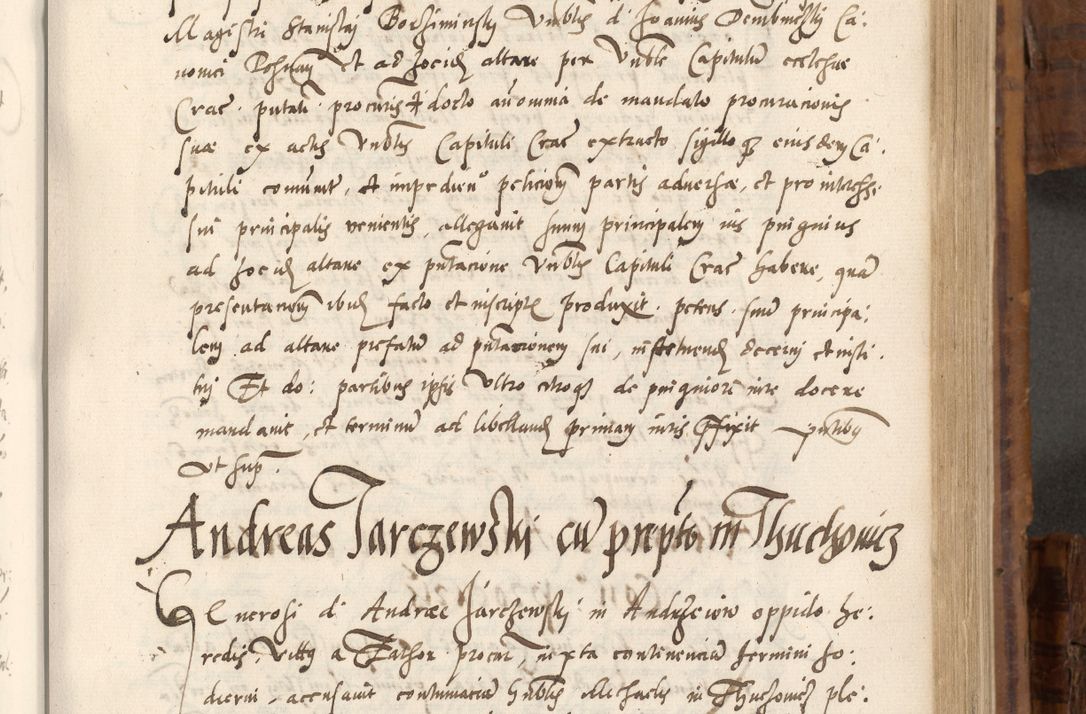 Magistri Stanislaj Borsiminsky Vnblis d Joannis Dembinskj Ca:
nonici Posnan et ad Joeidj altare per Vnble Capitulum ecclesiae
Crac putati procuris docto de mandato procuracionis
suae ex actis Vnblis Capituli Crac extracto sigillo qz eiusdem Ca:
pituli comunit, et impedien peticionj partis adversae, et pro interesse
sui principalis venientis, allegavit suum principalem ius pinguius
ad altare ex pntacione Vnblis Capituli Crac habere, quam
presentacionem ibidem facto et inscriptis produxit petens suum principa:
lem ad altare prefatum ad pntacionem sui, instituendj decerni et insti:
tuj Et do: partibus ipsis Vltro citroqz de pinguiore iure docere
mandavit, et terminum ad libellandj primam iuris ffixit pntibus
Vt supra.
Andreas Jarczewski cum preposito in Thuchowicz
Generosi d Andreae Jarczewskj in Andrzeiow oppido he:
redis, Vittus a Tathor procur, iuxta continenciam termini ho:
dierni accusavit contumaciam hnblis Michaelis in Thuchowicz ple: